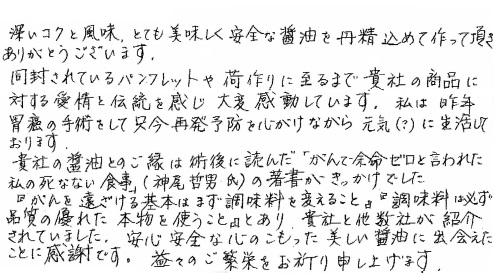 深いコクと風味、とても美味しく安全な醤油を丹精込めて作って頂き
ありがとうございます。
同封されているパンフレットや荷作りに至るまで貴社の商品に
対する愛情と伝統を感じ大変感動しています。私は昨年
胃癌の手術をして只今再発予防を心がけながら元気(?)に生活して
おります。
貴社の醤油とのご縁は術後に読んだ「がんで余命ゼロと言われた
私の死なない食事」(神尾哲男氏)の著書がきっかけでした
『がんを遠ざける基本はまず調味料を変えること』『調味料は必ず
品質の優れた本物を使うこと』とあり、貴社と他数社が紹介
されていました。安心安全な心のこもった美しい醤油に出会えた
ことに感謝です。益々のご繁栄をお祈り申し上げます